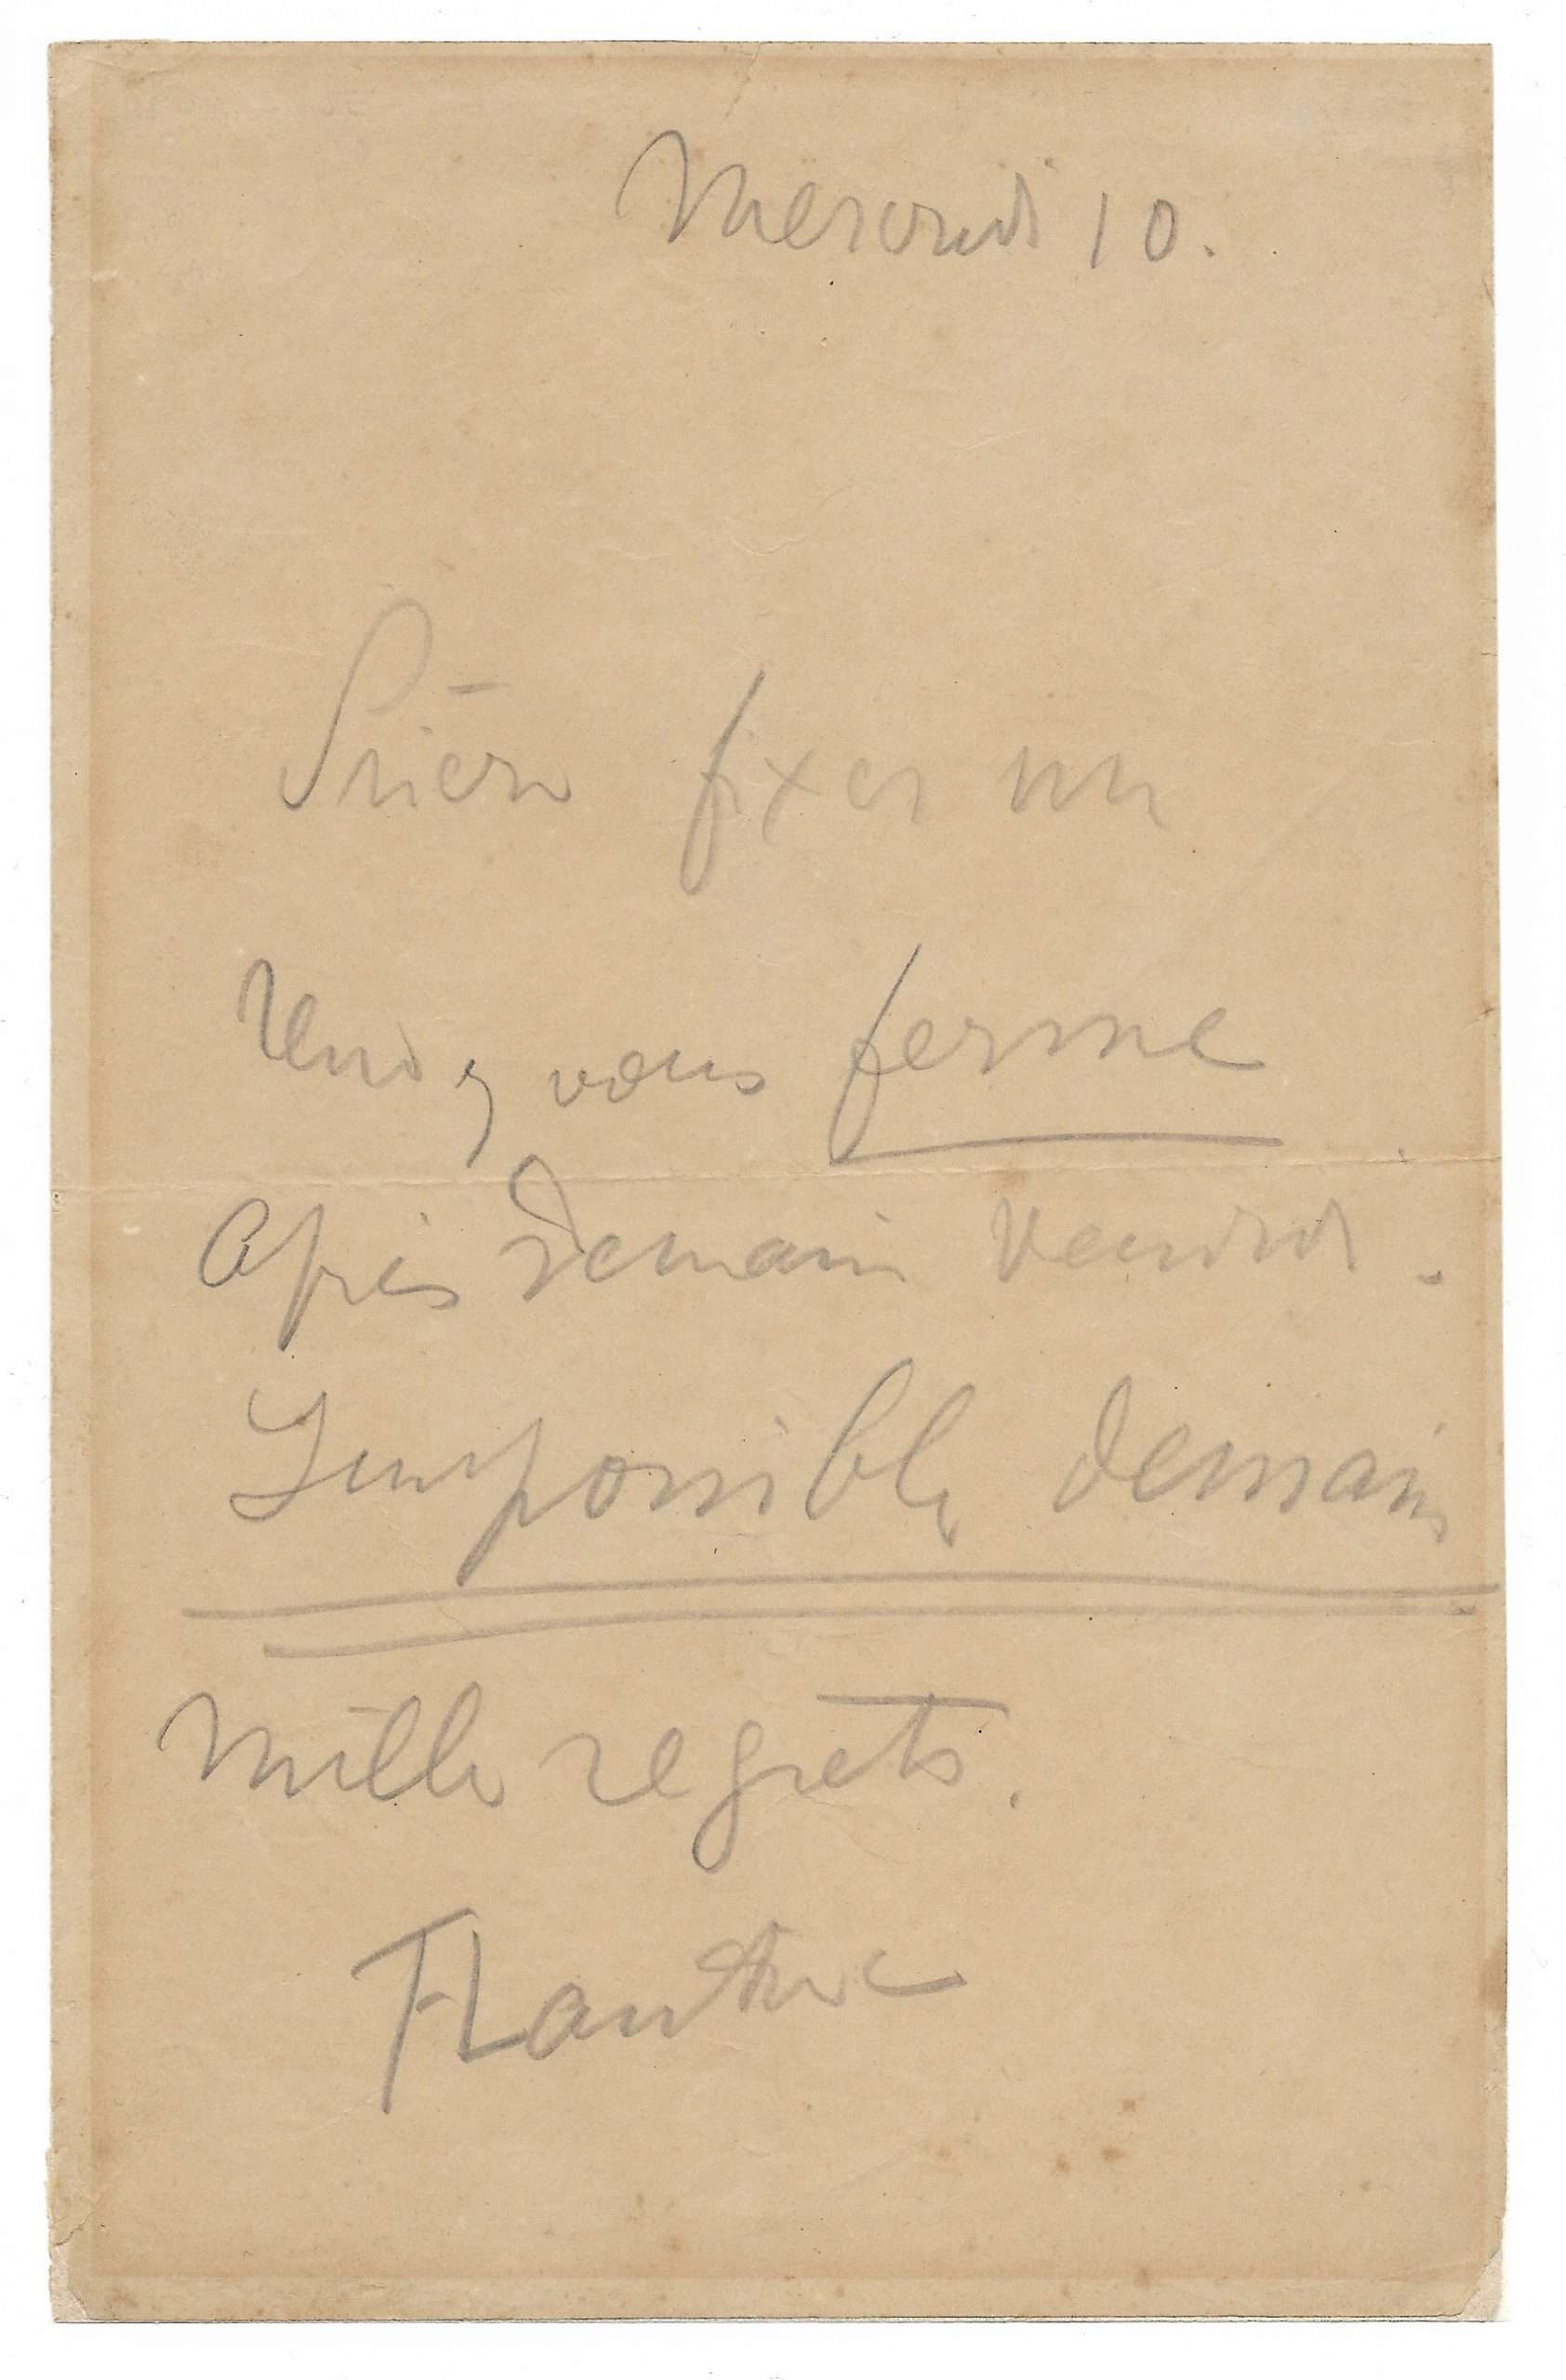 Mercredi 10.
Prière fixer un
Rendez vous ferme
après demain vendredi.
Impossible demain
Mille regrets.
HLautrec